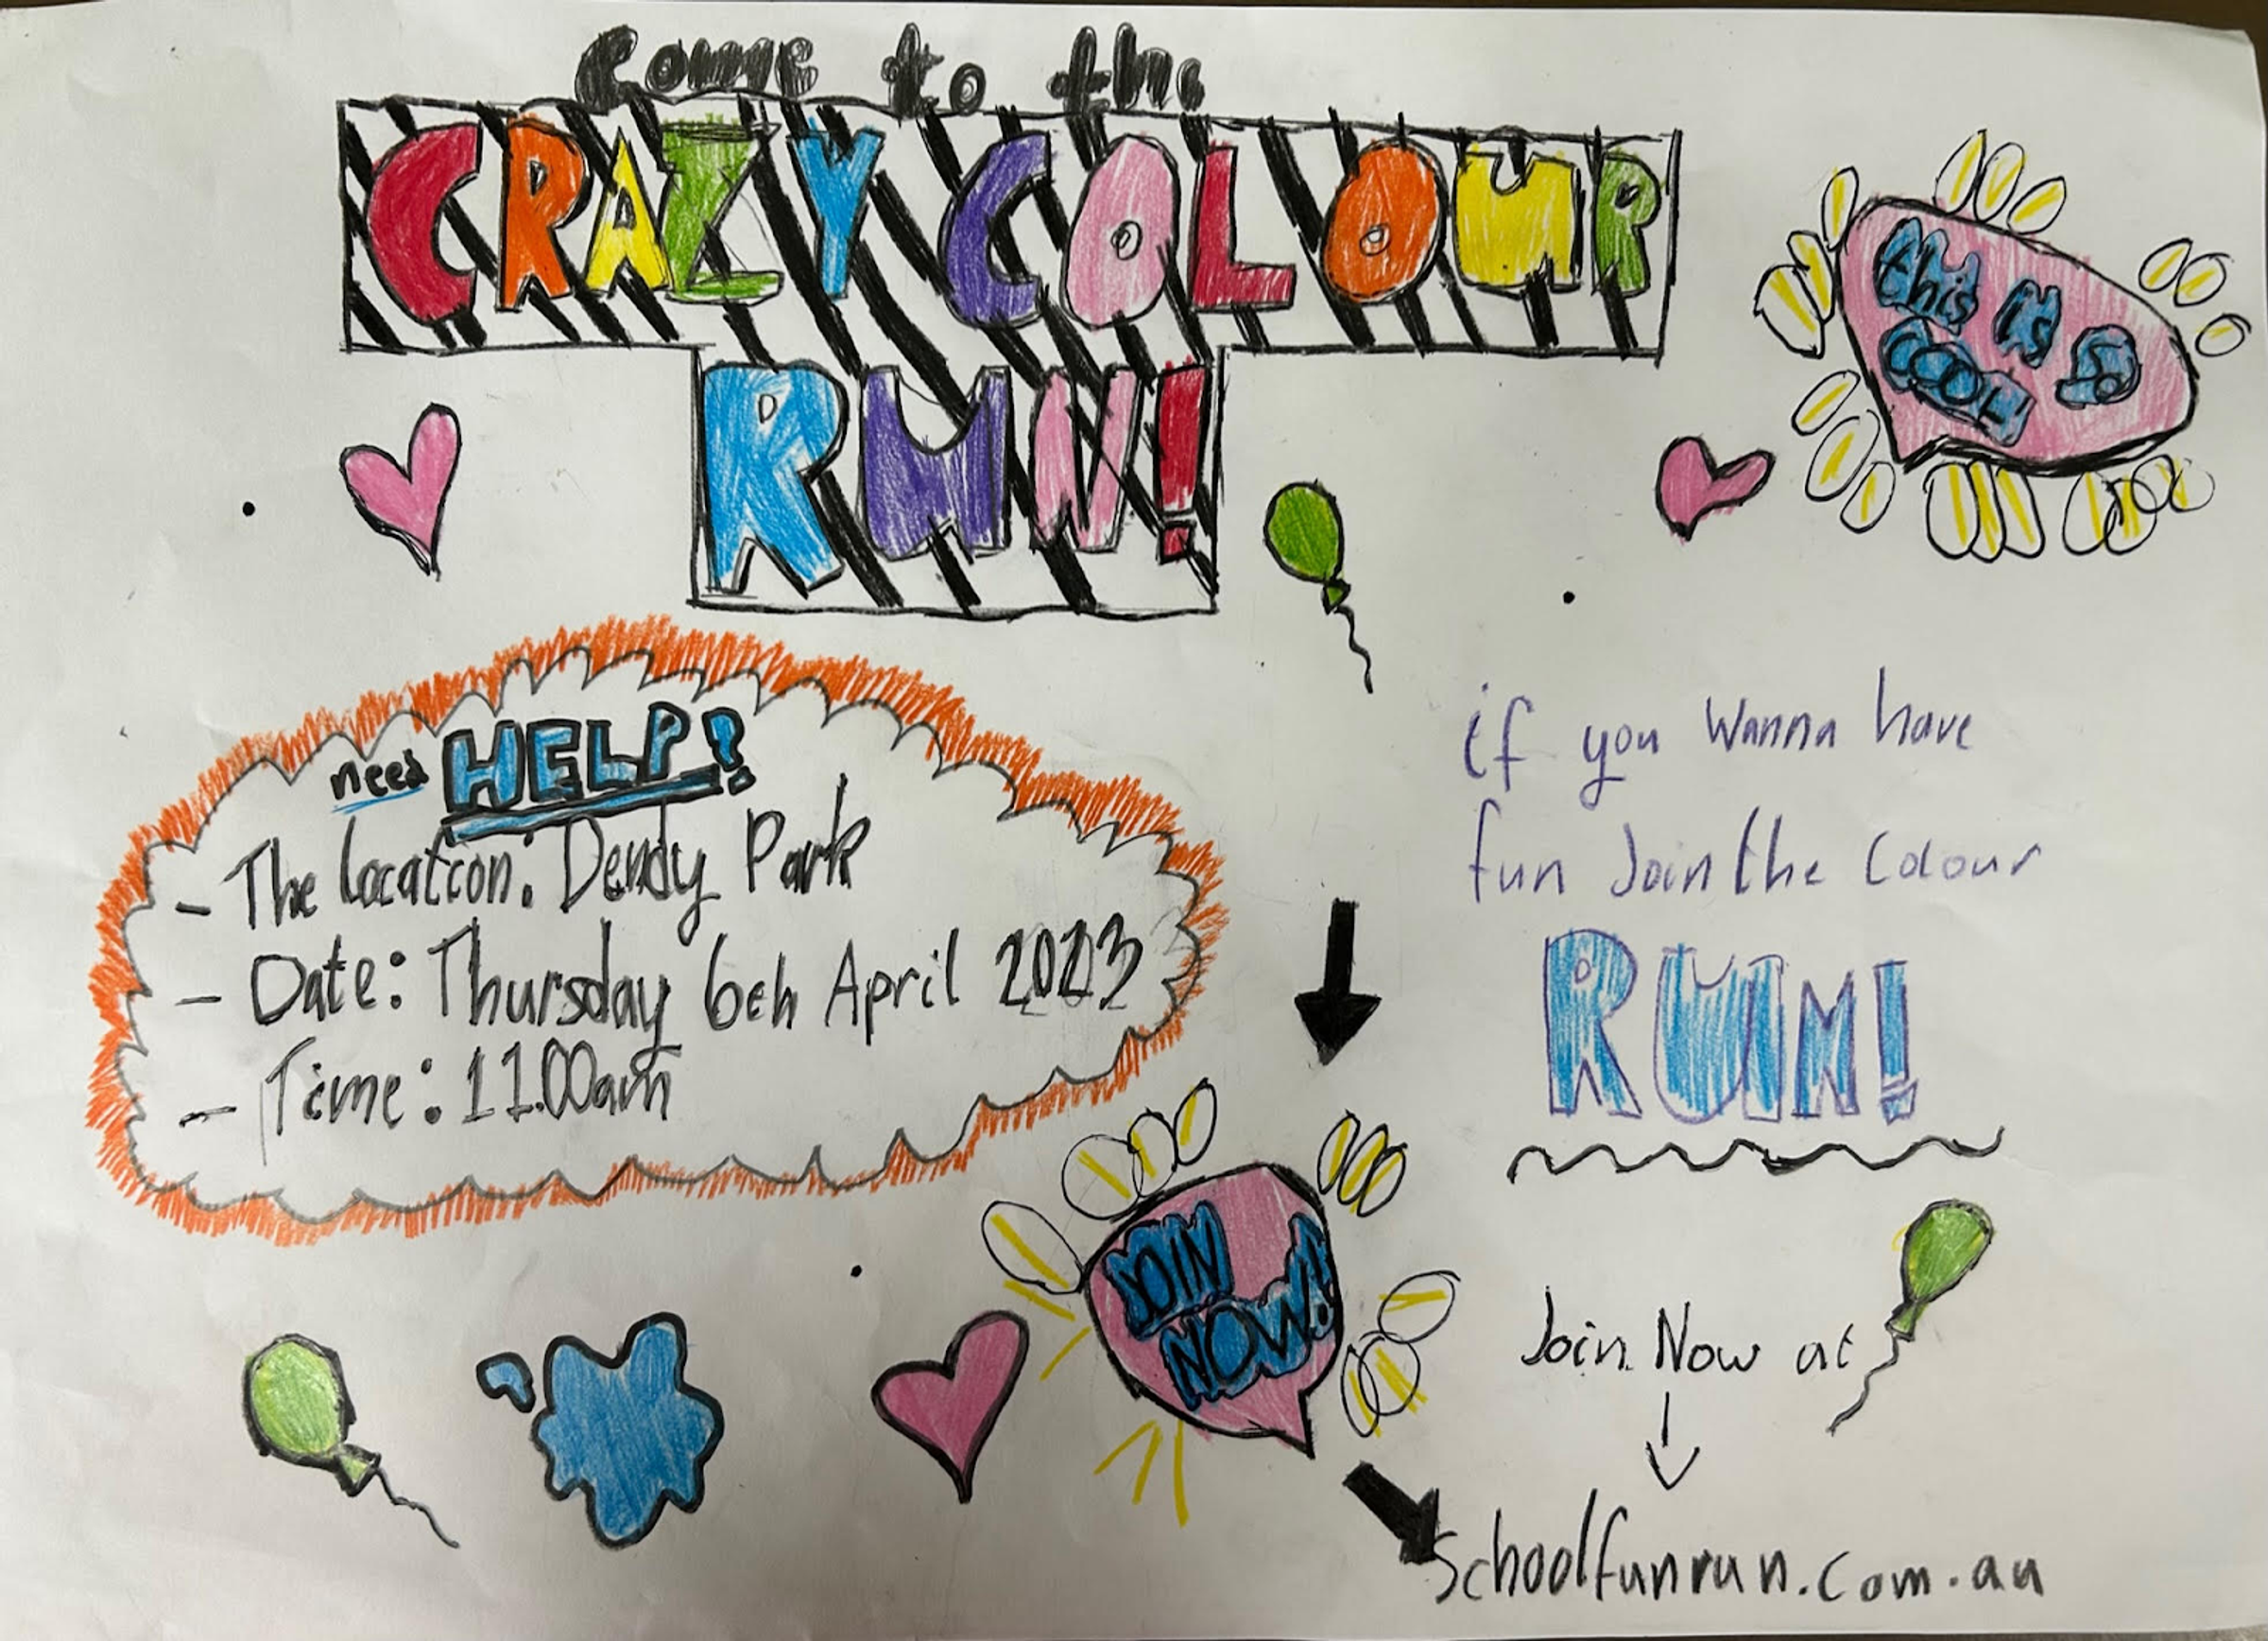 Come to the
CRAZY COLOUR
RUN!
this is so
COOL!
need HELP?
- The location: Dendy Park
- Date: Thursday 6th April 2023
- Time: 11.00am
if you wanna have
fun Join the Colour
RUN!
JOIN
NOW!
Join Now at
Schoolfunrun.com.au